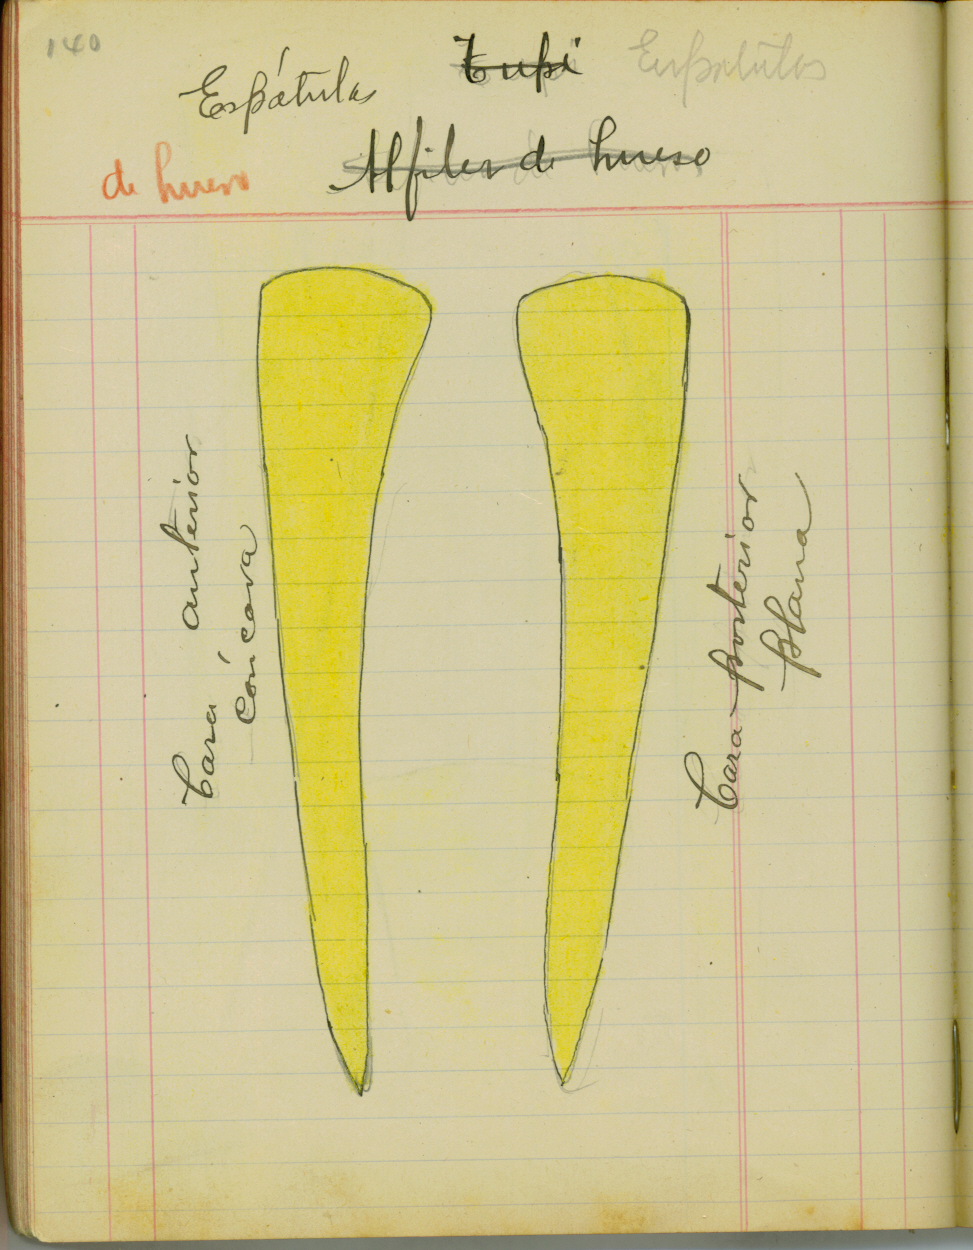 140
Espátulas
Tupi
Espatulas
de hueso
Alfiler de hueso
Cara anterior
cóncava
Cara posterior
plana